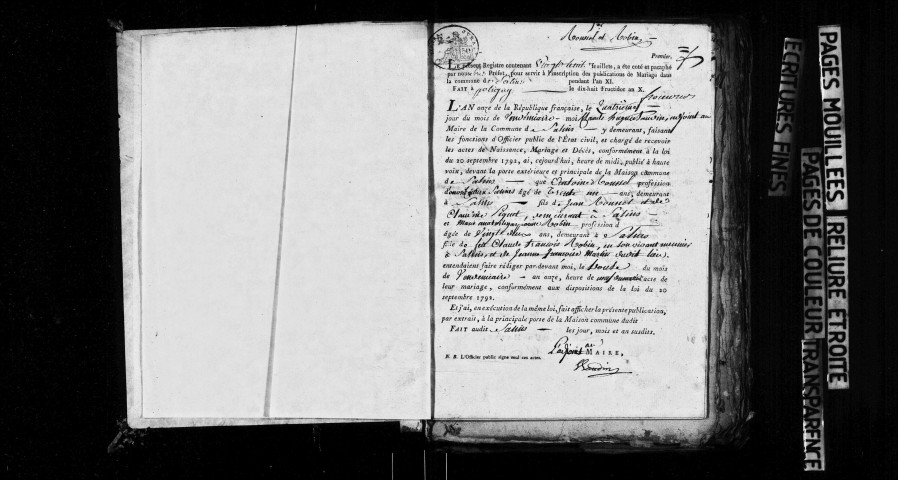 Rousset et Robin
Premier.
LE présent Registre contenant Vingt huit feuillets, a été coté et paraphé
par nous Préfet, pour servir à l'inscription des publications de Mariage dans
la commune de Salins pendant l'an XI.
FAIT à poligny le dix-huit fructidor an X.
L'AN onze de la République française, le Quatrième
jour du mois de Vendémiaire - moi Claude adjoint au
Maire de la Commune de Salins - y demeurant, faisant
les fonctions d'Officier public de l'État civil, et chargé de recevoir
les actes de Naissance, Mariage et Décès, conformément à la loi
du 20 septembre 1792, ai, cejourd'hui, heure de midi, publié à haute
voix, devant la porte extérieure et principale de la Maison commune
de Salins - que Antoine Rousset profession
d'ouvrier aux Salines âgé de trente un - ans, demeurant
à Salins - fils de Jean Rousset et de
Claudine Piguet, demeurant à Salins
et Robin profession d
âgée de Vingt deux ans, demeurant à Salins
fille de feu Claude françois Robin, en son vivant meunier
à Salins, et de Jeanne françoise dudit lieu,
entendaient faire rédiger par-devant moi, le douze du mois
de Vendémiaire - an onze, heure de acte de
leur mariage, conformément aux dispositions de la loi du 20
septembre 1792.
Et j'ai, en exécution de la même loi, fait afficher la présente publication,
par extrait, à la principale porte de la Maison commune dudit
FAIT audit Salins - les jour, mois et an susdits.
L'adjoint au MAIRE,
N. B. L'Officier public signe seul ces actes.
PAGES MOUILLEES RELIURE ETROITE
PAGES DE COULEUR TRANSPARENCE
ECRITURES FINES